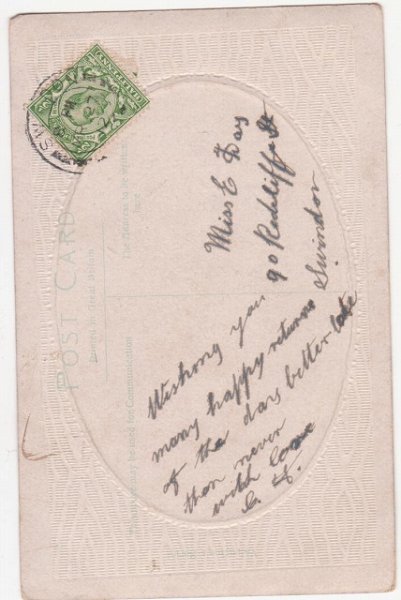 POST CARD
Printed in Great Britain
This space may be used for Communication
The Address to be written here
HALFPENNY
Miss E Day
90 Redcliffe St
Swindon
Wishing you
many happy returns
of the day better late
than never
with love